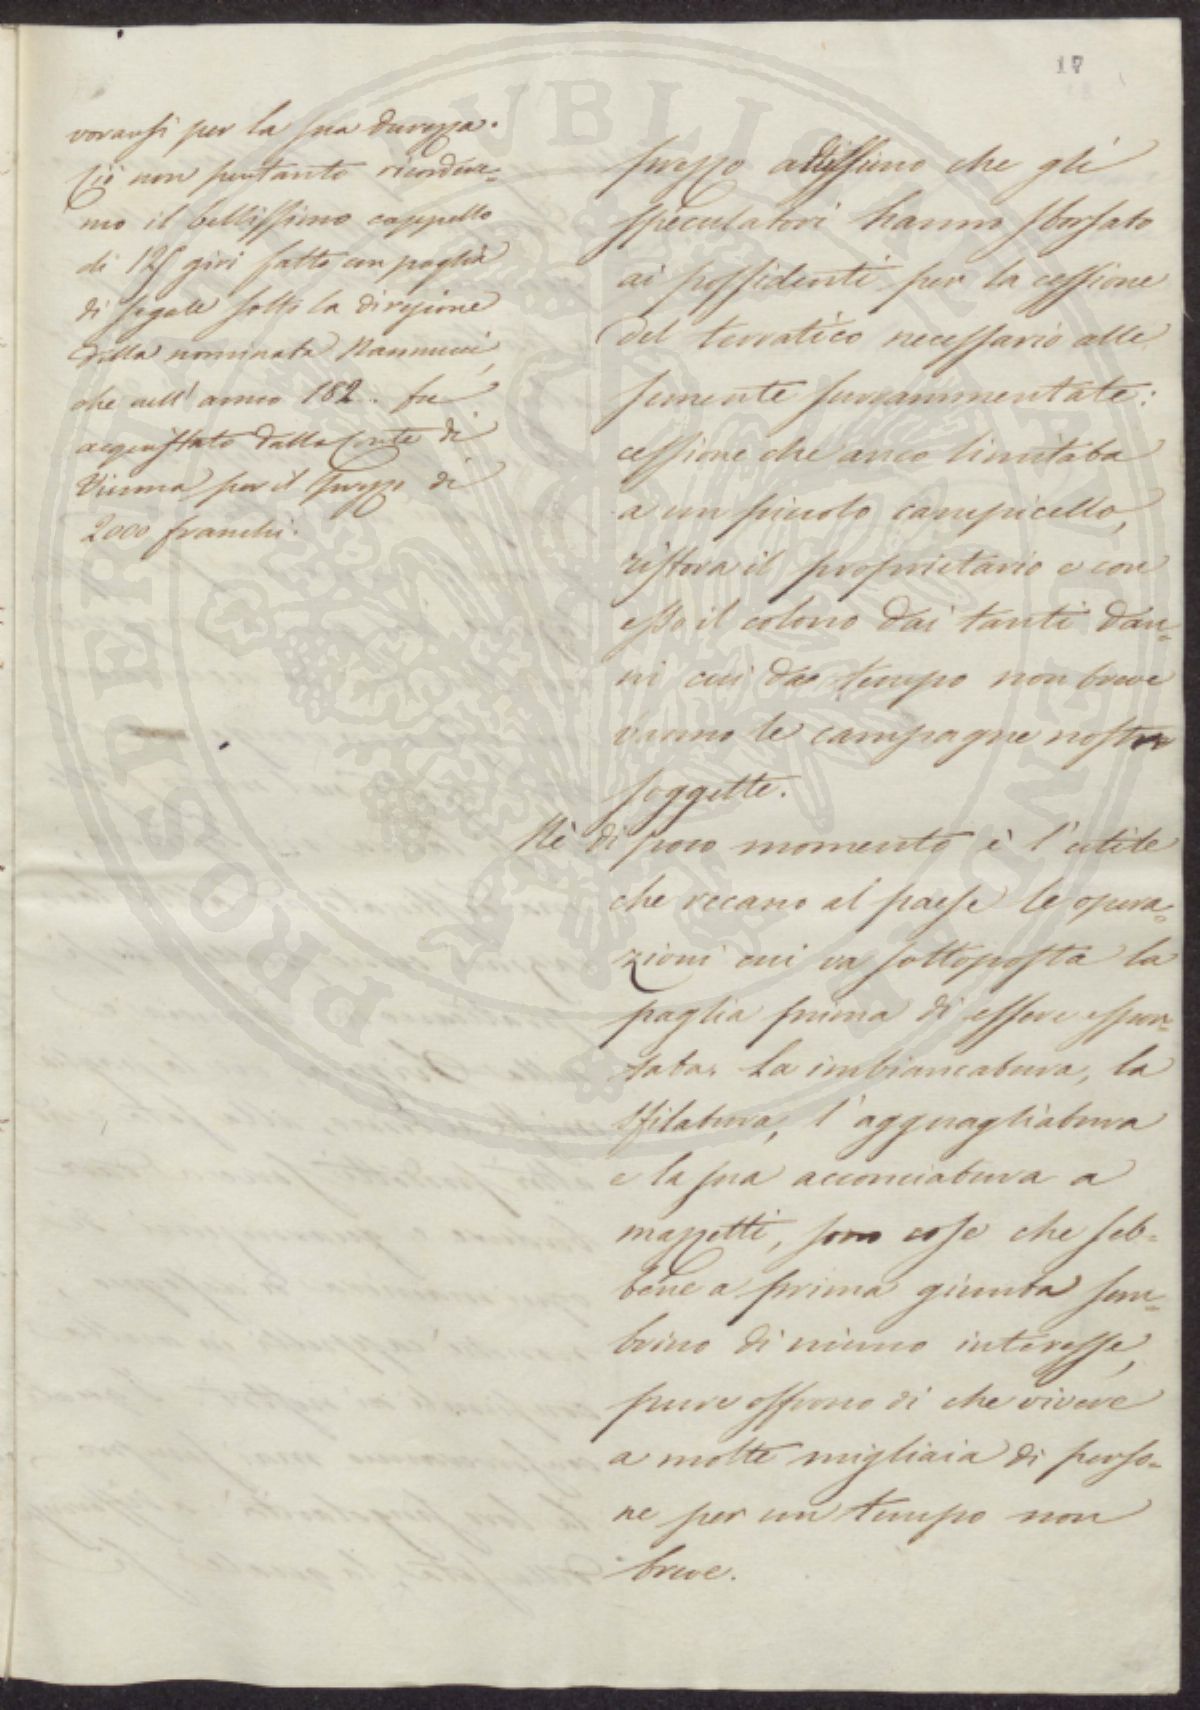 17
vorarsi per la sua durezza.
Ciò non pertanto ricordere-
mo il bellissimo cappello
di 125 giri fatto con paglia
di segale sotto la direzione
della nominata Nannucci,
che nell'anno 182. fu
acquistato dalla Corte di
Vienna per il prezzo di
2000 franchi.
prezzo altissimo che gli
speculatori hanno sborsato
ai possidenti per la cessione
del terratico necessario alle
semente surrammentate:
cessione che anco limitata
a un piccolo campicello,
ristora il proprietario e con
esso il colono dai tanti dan-
ni cui da tempo non breve
vanno le campagne nostre
soggette.
Nè di poco momento è l'utile
che recano al paese le opera-
zioni cui va sottoposta la
paglia prima di essere espor-
tata. La imbiancatura, la
sfilatura, l'agguagliatura
e la sua acconciatura a
mazzetti, sono cose che seb-
bene a prima giunta sem-
brino di niuno interesse,
pure offrono di che vivere
a molte migliaia di perso-
ne per un tempo non
breve.
PROSPERITATI PUBLICAE AUGENDAE